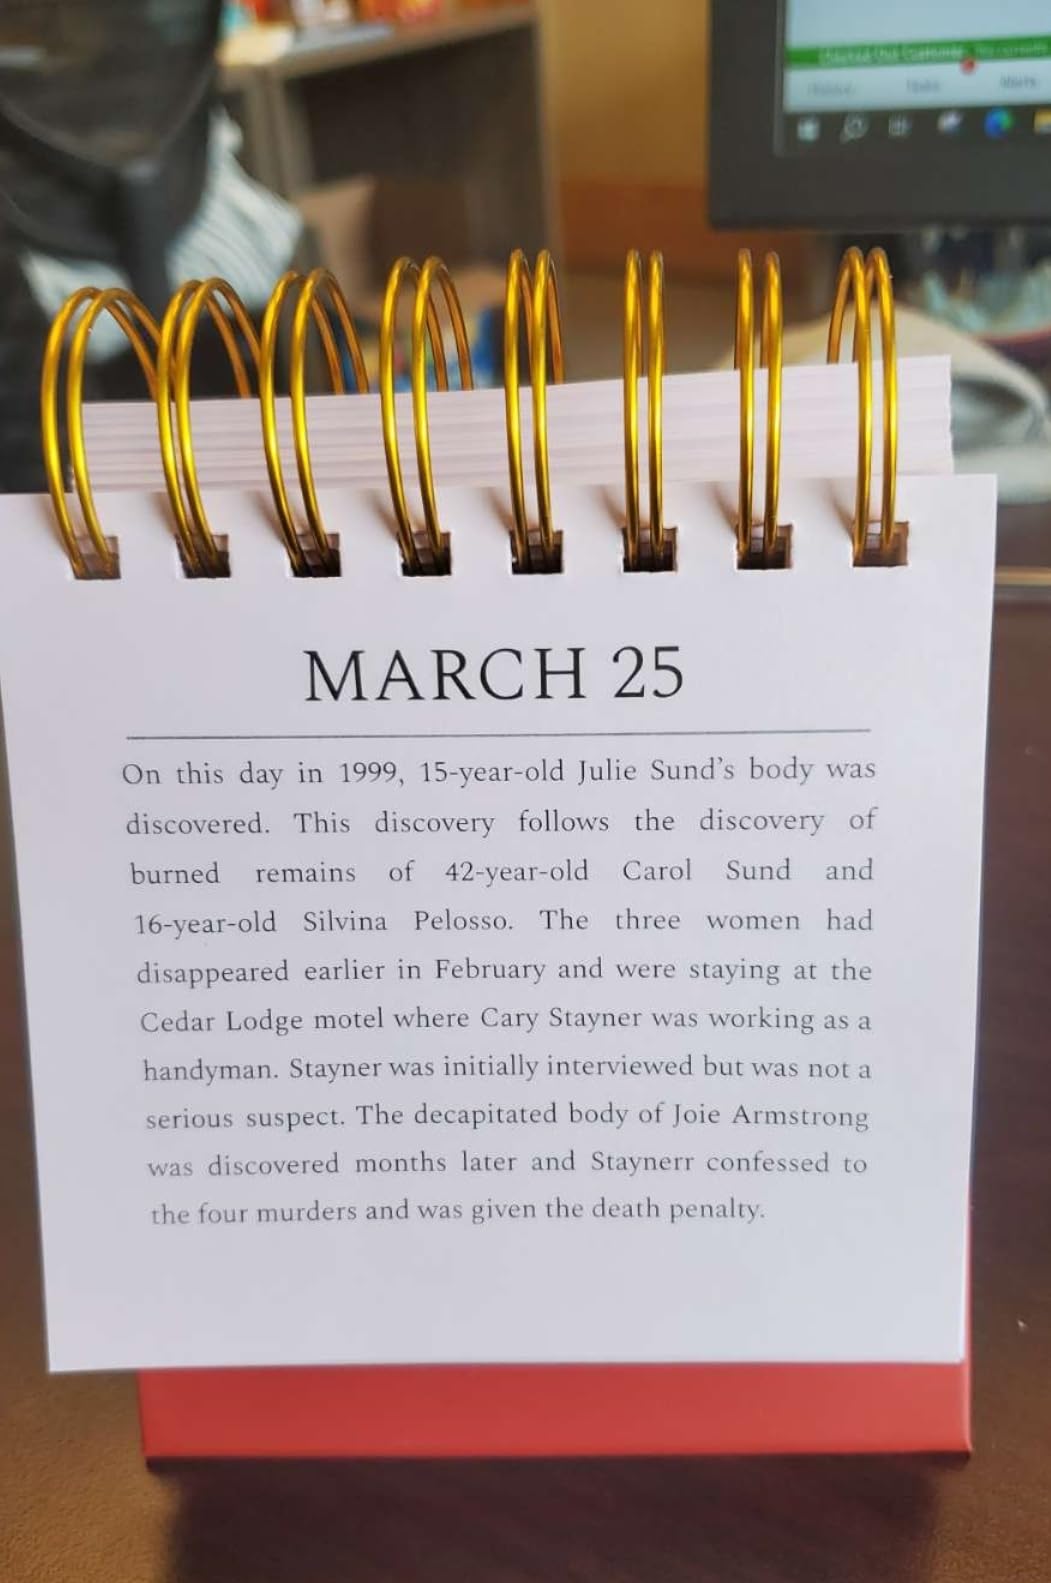 MARCH 25
On this day in 1999, 15-year-old Julie Sund's body was
discovered. This discovery follows the discovery of
burned remains of 42-year-old Carol Sund and
16-year-old Silvina Pelosso. The three women had
disappeared earlier in February and were staying at the
Cedar Lodge motel where Cary Stayner was working as a
handyman. Stayner was initially interviewed but was not a
serious suspect. The decapitated body of Joie Armstrong
was discovered months later and Staynerr confessed to
the four murders and was given the death penalty.